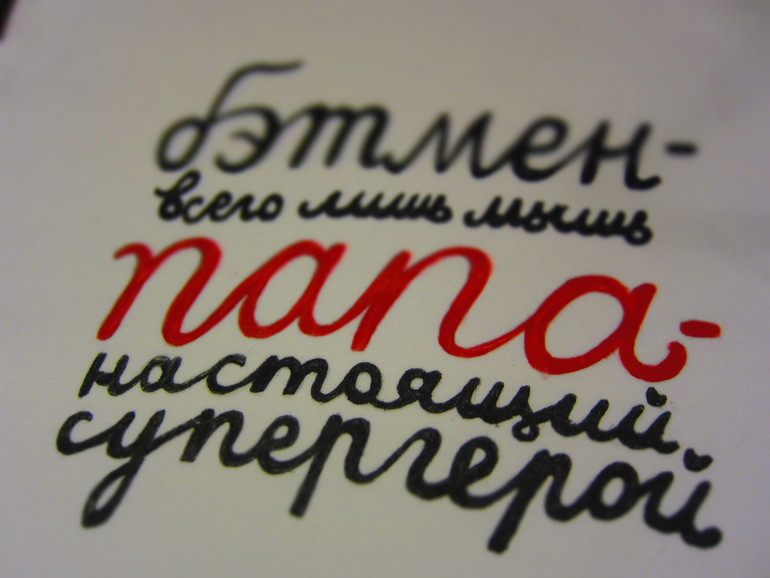 бэтмен-
всего лишь мышь
папа-
настоящий
супергерой